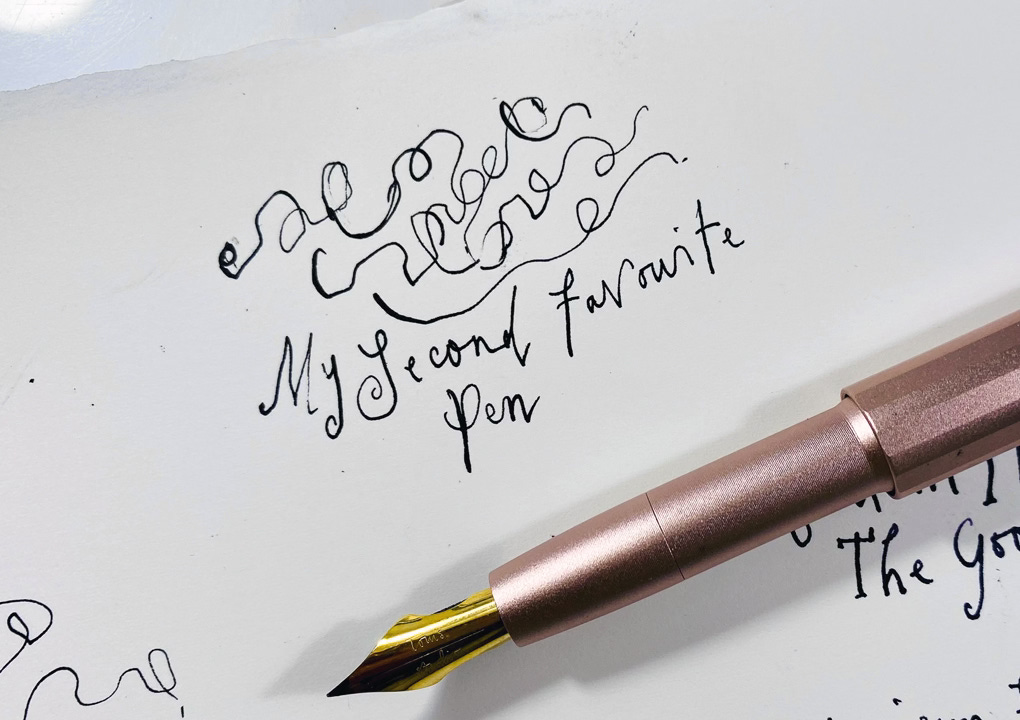 My Second Favourite
Pen
The Goo